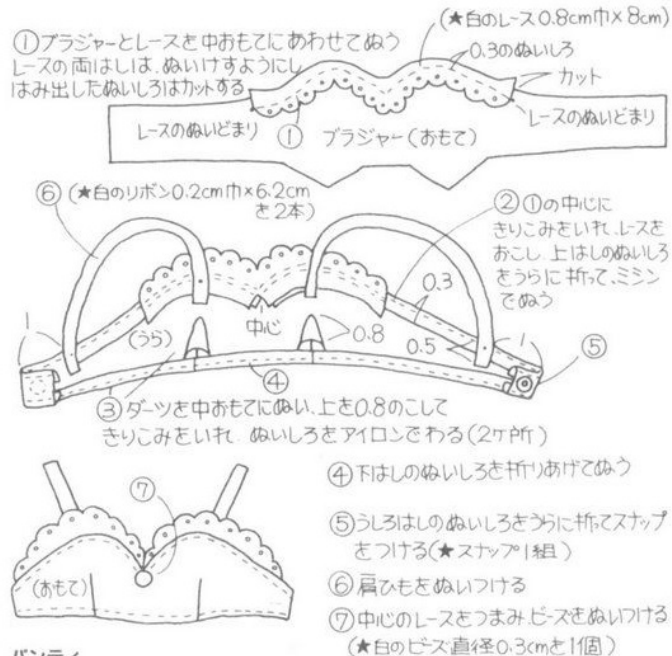 (★白のレース0.8cm巾×8cm)
①ブラジャーとレースを中おもてにあわせてぬう
レースの両はしは、ぬいけすようにし
はみ出したぬいしろはカットする
0.3のぬいしろ
カット
レースのぬいどまり
①
ブラジャー(おもて)
レースのぬいどまり
⑥(★白のリボン0.2cm巾×6.2cm
を2本)
②①の中心に
きりこみをいれ、レースを
おこし、上はしのぬいしろ
をうらに折って、ミシン
でぬう
0.3
1
(うら)
中心
0.8
0.5
1
⑤
④
③ダーツを中おもてにぬい、上を0.8のこして
きりこみをいれ、ぬいしろをアイロンでわる(2ヶ所)
⑦
(おもて)
④下はしのぬいしろを折りあげてぬう
⑤うしろはしのぬいしろをうらに折ってスナップ
をつける(★スナップ1組)
⑥肩ひもをぬいつける
⑦中心のレースをつまみ、ビーズをぬいつける
(★白のビーズ直径0.3cmを1個)
パンティ